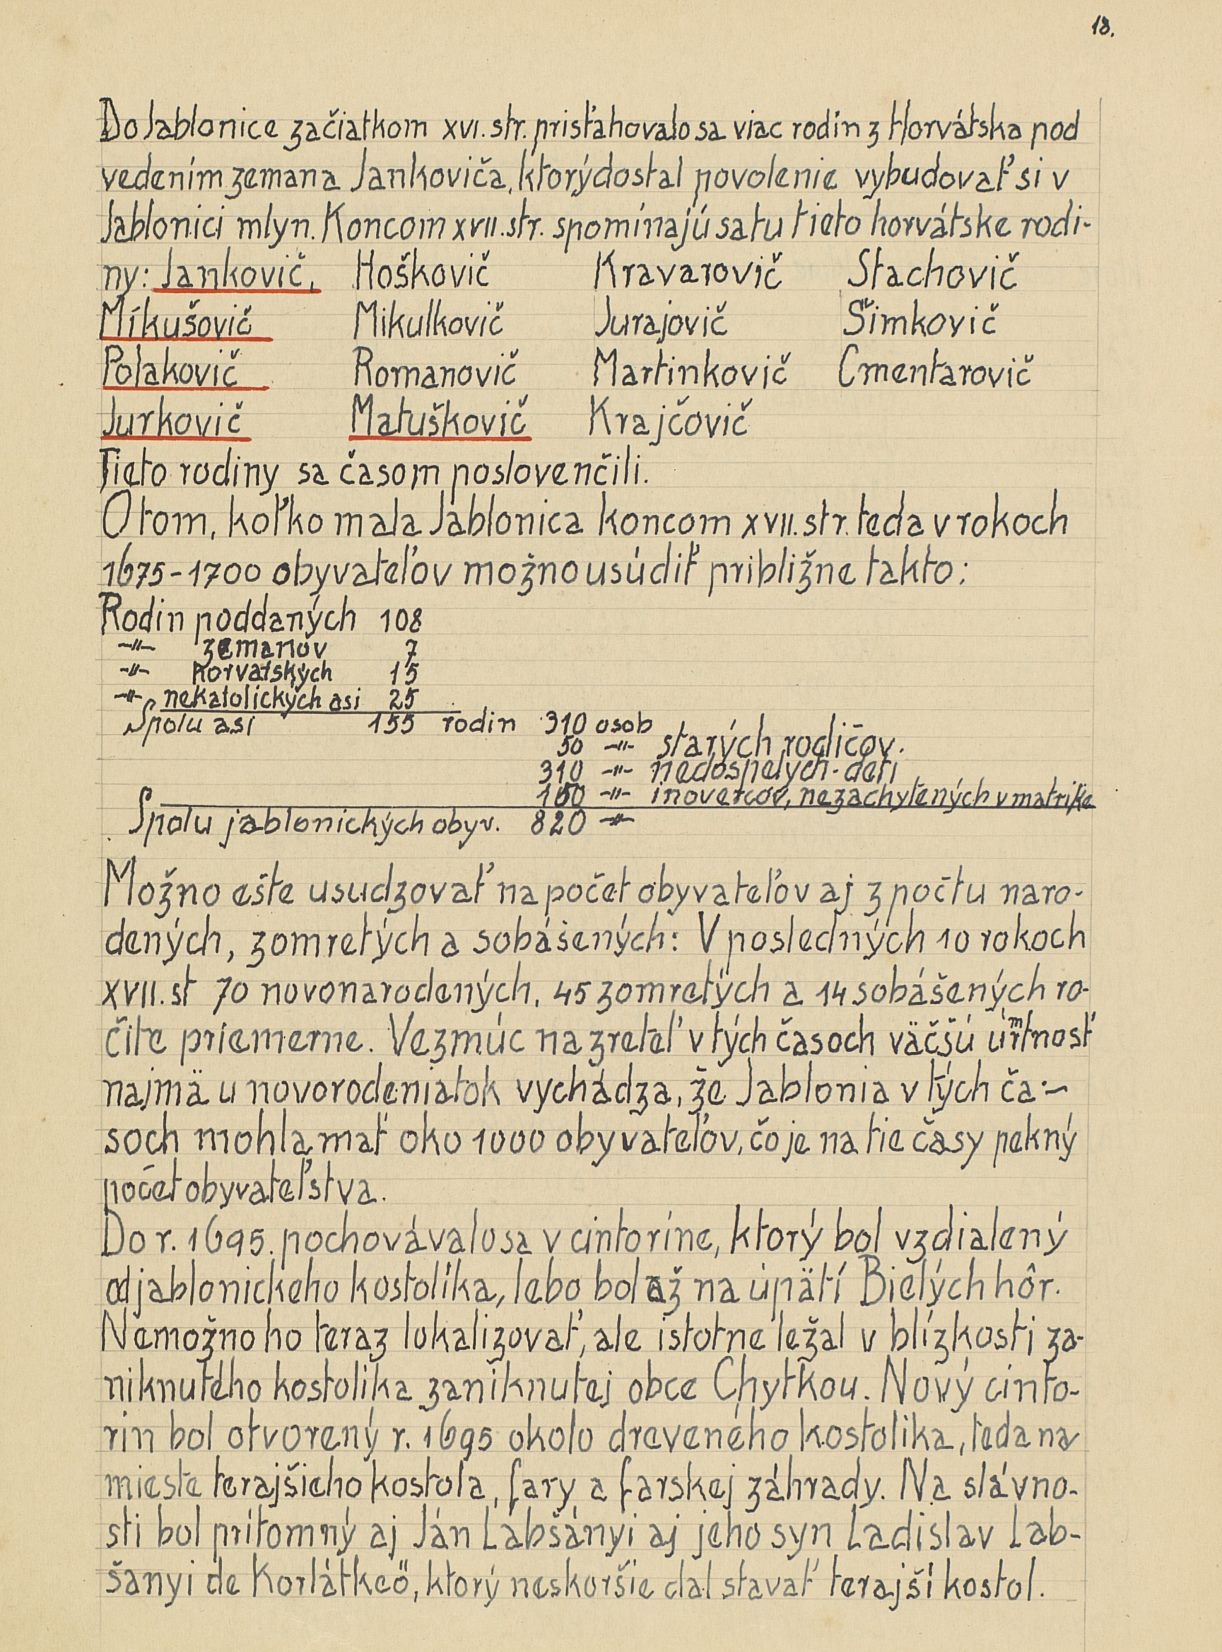 18.
Do Jablonice začiatkom XVI. str. prisťahovalo sa viac rodín z Horvátska pod
vedením zemana Jankoviča, ktorý dostal povolenie vybudovať si v
Jablonici mlyn. Koncom XVII. str. spomínajú sa tu tieto horvátske rodi-
ny: Jankovič, Hoškovič Kravarovič Stachovič
Mikušovič Mikulkovič Jurajovič Šimkovič
Polakovič Romanovič Martinkovič Cmentarovič
Jurkovič Matuškovič Krajčovič
Tieto rodiny sa časom poslovenčili.
O tom, koľko mala Jablonica koncom XVII. str. teda v rokoch
1675-1700 obyvateľov možno usúdiť približne takto:
Rodin poddaných 108
-"- zemanov 7
-"- horvatských 15
-"- nekatolických asi 25
Spolu asi 155 rodin 310 osob
50 -"- starých rodičov.
310 -"- nedospelých-deti
150 -"- inovercov, nezachytených v matrike
Spolu jablonických obyv. 820 -"-
Možno ešte usudzovať na počet obyvateľov aj z počtu naro-
dených, zomretých a sobášených: V posledných 10 rokoch
XVII. st 70 novonarodených, 45 zomretých a 14 sobášených ro-
čite priemerne. Vezmúc na zreteľ v tých časoch väčšú úmrtnosť
najmä u novorodeniatok vychádza, že Jablonia v tých ča-
soch mohla mať oko 1000 obyvateľov, čo je na tie časy pekný
počet obyvateľstva.
Do r. 1695. pochovávalo sa v cintoríne, ktorý bol vzdialený
od jablonického kostolíka, lebo bol až na úpätí Bielých hôr.
Nemožno ho teraz lokalizovať, ale istotne ležal v blízkosti za-
niknutého kostolíka zaniknutej obce Chytkou. Nový cinto-
rin bol otvorený r. 1695 okolo dreveného kostolika, teda na
mieste terajšieho kostola, fary a farskej záhrady. Na slávno-
sti bol prítomný aj Ján Labšányi aj jeho syn Ladislav Lab-
šanyi de Korlátkeö, ktorý neskoršie dal stavať terajší kostol.